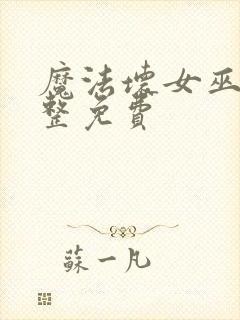 魔法壞女巫
整免費
蘇一凡